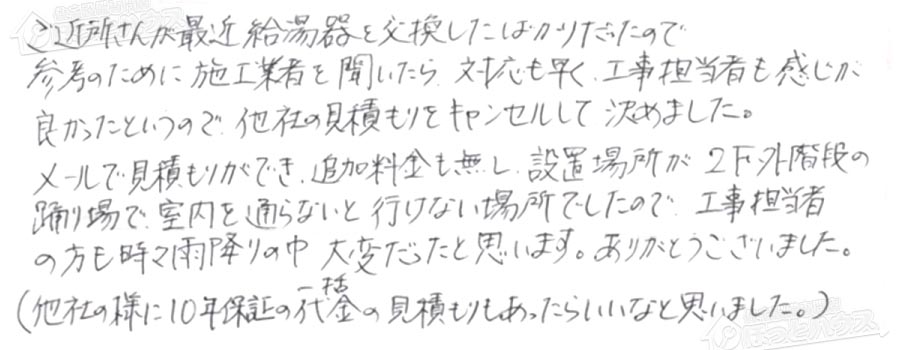 ご近所さんが最近給湯器を交換したばかりだったので
参考のために施工業者を聞いたら、対応も早く、工事担当者も感じが
良かったというので、他社の見積もりをキャンセルして決めました。
メールで見積もりができ、追加料金も無し、設置場所が2F外階段の
踊り場で、室内を通らないと行けない場所でしたので、工事担当者
の方も時々雨降りの中大変だったと思います。ありがとうございました。
一括
(他社の様に10年保証の代金の見積もりもあったらいいなと思いました。)